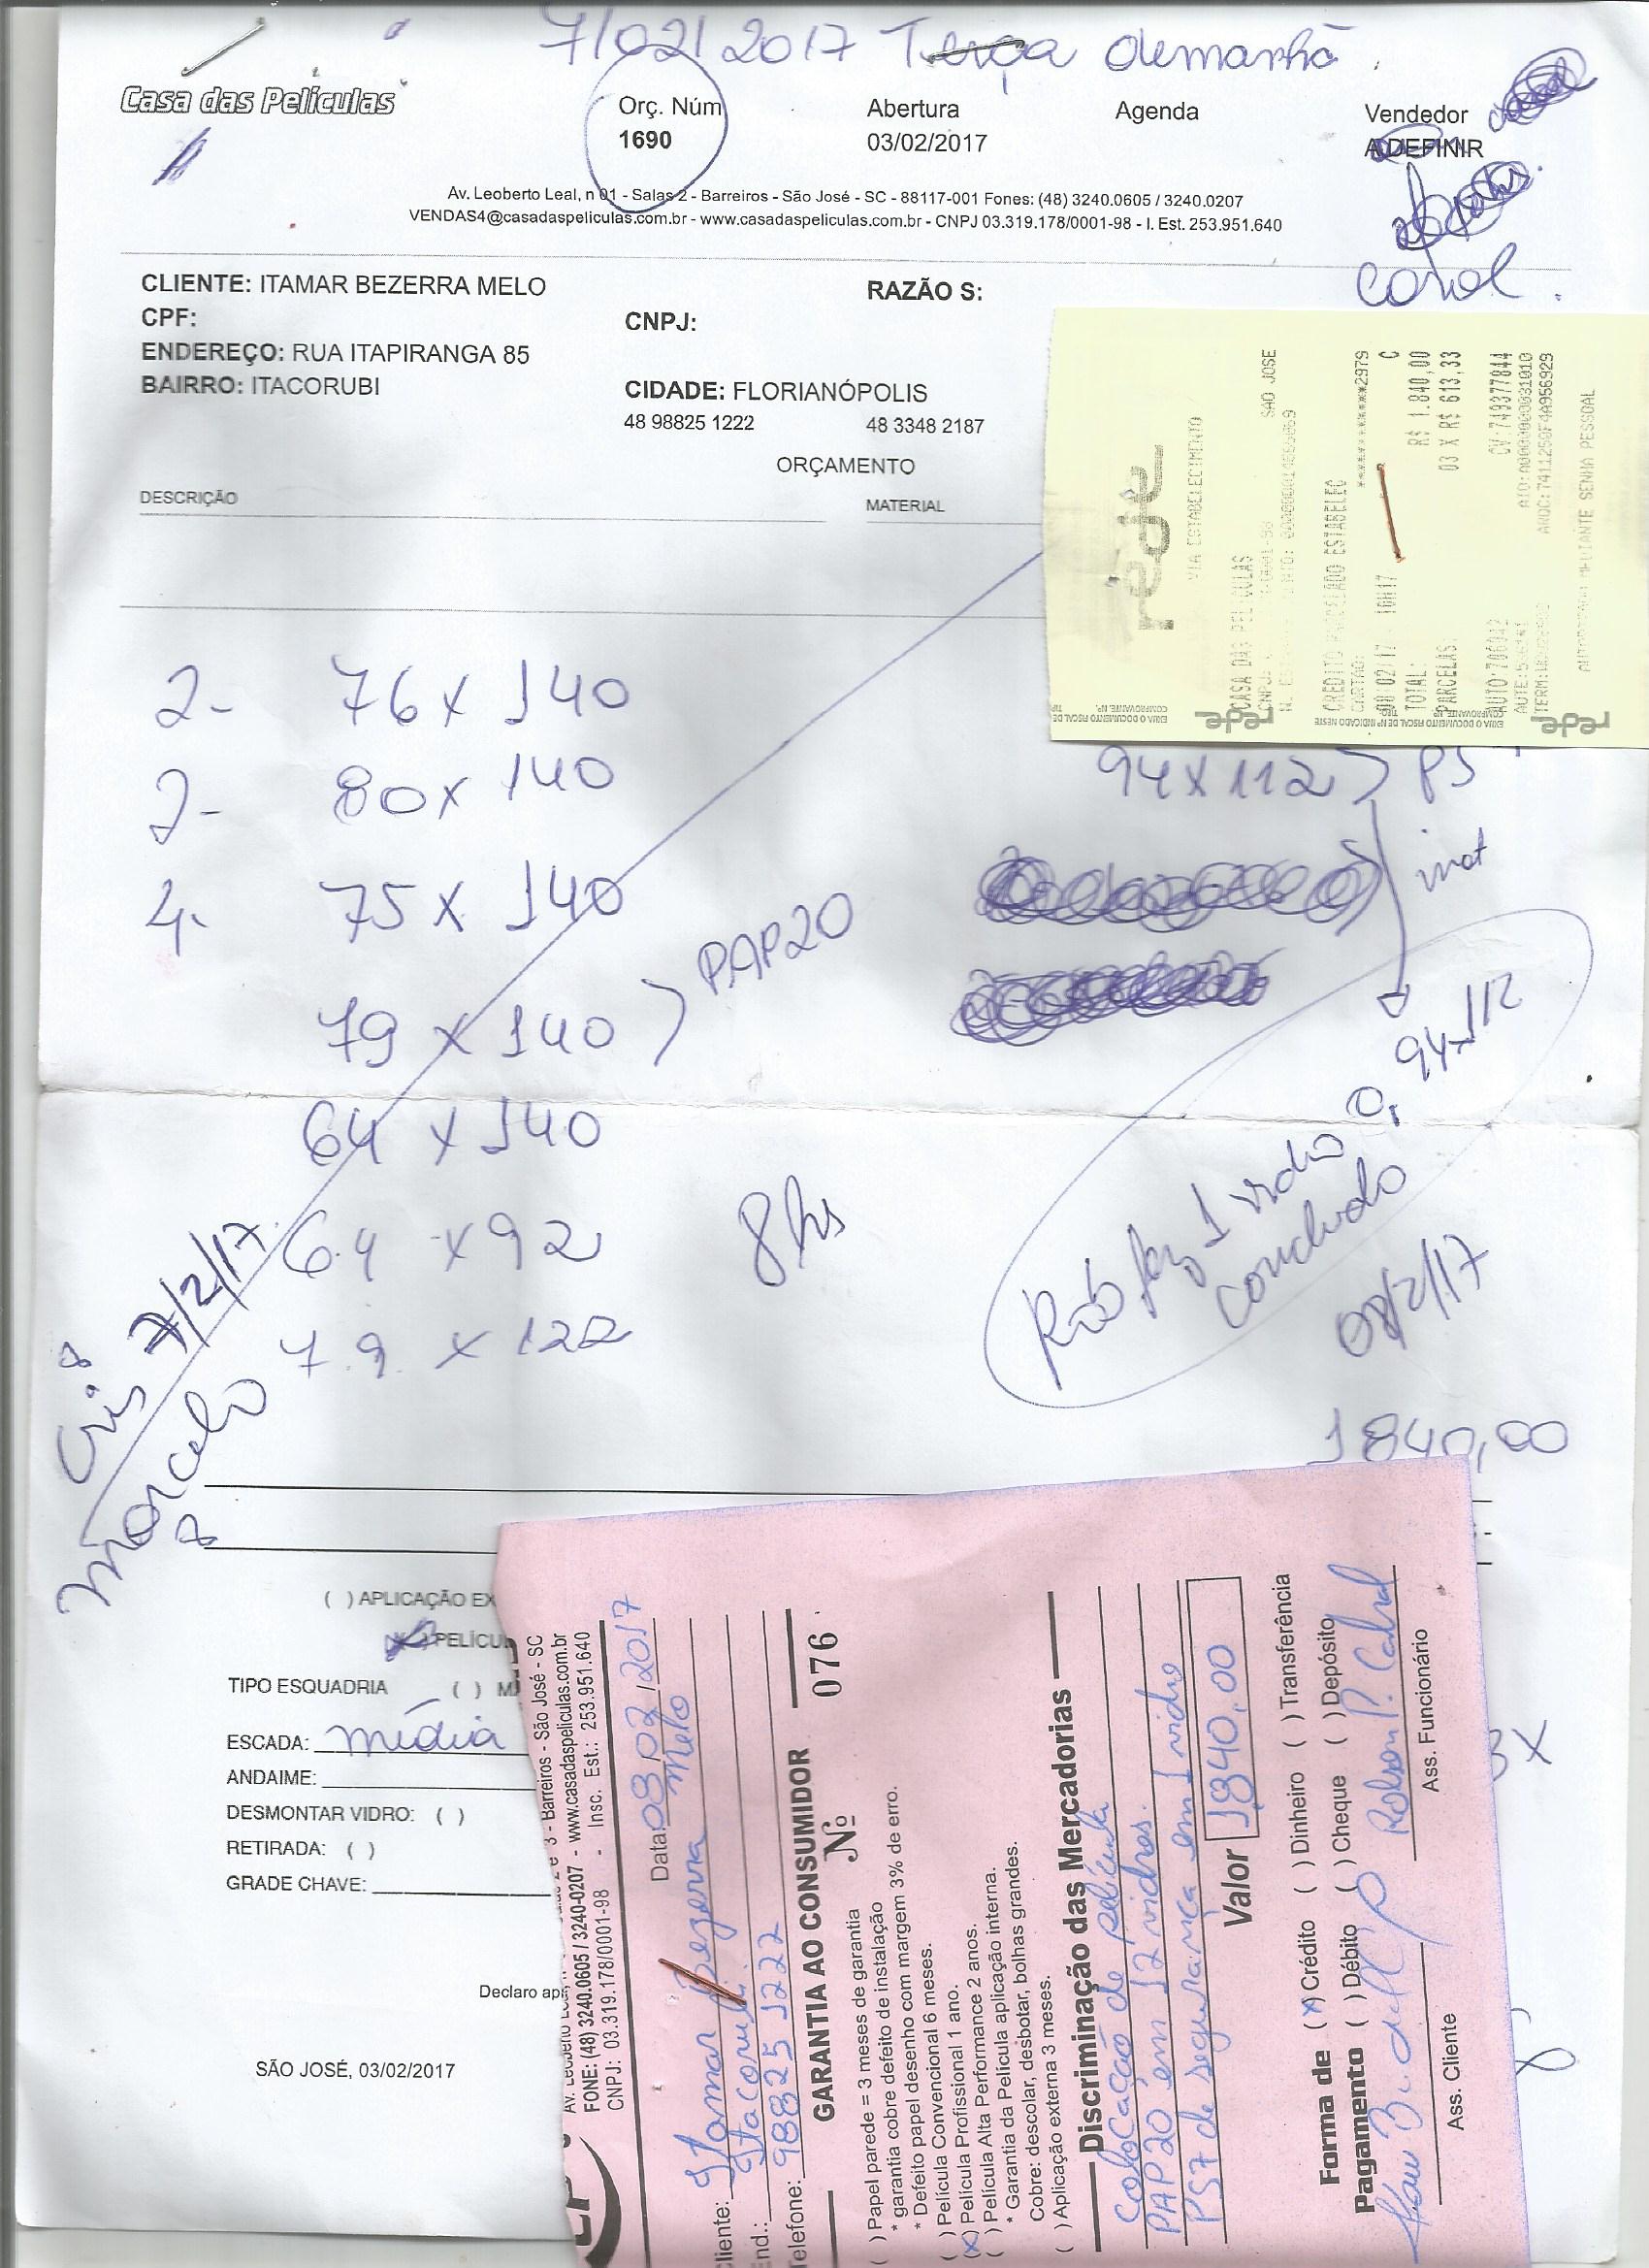 7/02/2017 Terça demanhã.
Casa das Películas
Orç. Núm
1690
Abertura
03/02/2017
Agenda
Vendedor
A DEFINIR
Av. Leoberto Leal, n 01 - Salas 2 - Barreiros - São José - SC - 88117-001 Fones: (48) 3240.0605 / 3240.0207
VENDAS4@casadaspeliculas.com.br - www.casadaspeliculas.com.br - CNPJ 03.319.178/0001-98 - I. Est. 253.951.640
CLIENTE: ITAMAR BEZERRA MELO
RAZÃO S:
CPF:
CNPJ:
ENDEREÇO: RUA ITAPIRANGA 85
BAIRRO: ITACORUBI
CIDADE: FLORIANÓPOLIS
48 98825 1222
48 3348 2187
ORÇAMENTO
DESCRIÇÃO
MATERIAL
rede
VIA ESTABELECIMENTO
CASA DAS PELICULAS
SAO JOSE
CREDITO PARCELADO ESTABELEC
CARTAO: ************2979
08/02/17 - 10H17
C
TOTAL: R$ 1.840,00
PARCELAS: 03 X R$ 613,33
CV:749377844
AID:A0000000031010
AUTORIZADA MEDIANTE SENHA PESSOAL
2- 76 x 140
2- 80 x 140
4- 75 x 140
79 x 140
PAP20
64 x 140
64 x 92
79 x 122
94 x 112
94x112
8hs
Rob fez 1 vidro
concluido
08/2/17
Cris 7/2/17
Marcelo
1840,00
( ) APLICAÇÃO EX
PELÍCU
TIPO ESQUADRIA ( ) M
ESCADA: média
ANDAIME:
DESMONTAR VIDRO: ( )
RETIRADA: ( )
GRADE CHAVE:
3x
Declaro
SÃO JOSÉ, 03/02/2017
3 - Barreiros - São José - SC
FONE: (48) 3240.0605 / 3240-0207 - www.casadaspeliculas.com.br
CNPJ: 03.319.178/0001-98 - Insc. Est.: 253.951.640
Data: 08/02/2017
liente: Itamar Bezerra Melo
nd.: Itacorubi
elefone: 98825 1222
GARANTIA AO CONSUMIDOR Nº 076
( ) Papel parede = 3 meses de garantia
* garantia cobre defeito de instalação
* Defeito papel desenho com margem 3% de erro.
( ) Película Convencional 6 meses.
(x) Película Profissional 1 ano.
( ) Película Alta Performance 2 anos.
* Garantia da Película aplicação interna.
Cobre: descolar, desbotar, bolhas grandes.
( ) Aplicação externa 3 meses.
Discriminação das Mercadorias
Colocação de película
PAP20 em 12 vidros.
PS7 de segurança em 1 vidro
Valor 1840,00
Forma de Pagamento
(x) Crédito ( ) Dinheiro ( ) Transferência
( ) Débito ( ) Cheque ( ) Depósito
Robson P. Cabral
Ass. Cliente
Ass. Funcionário